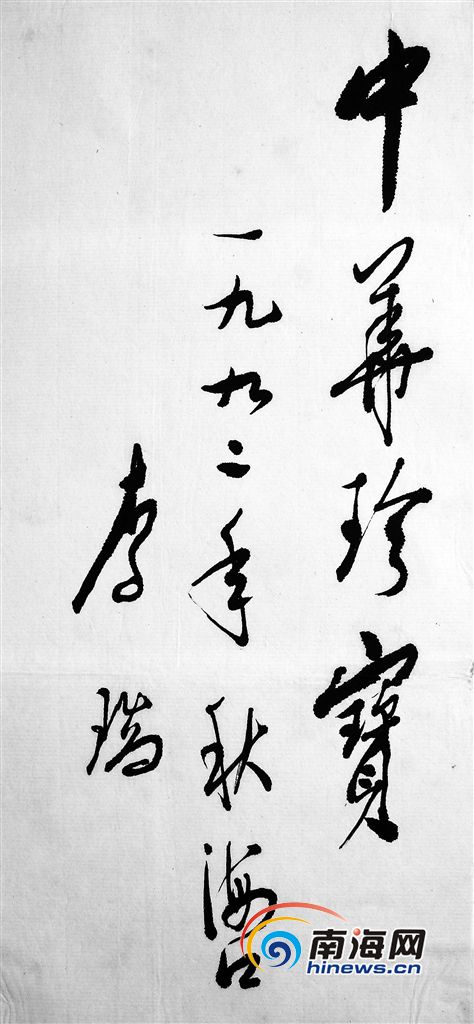 中華珍寶
一九九二年秋海口
李瑞
南海网
hinews.cn